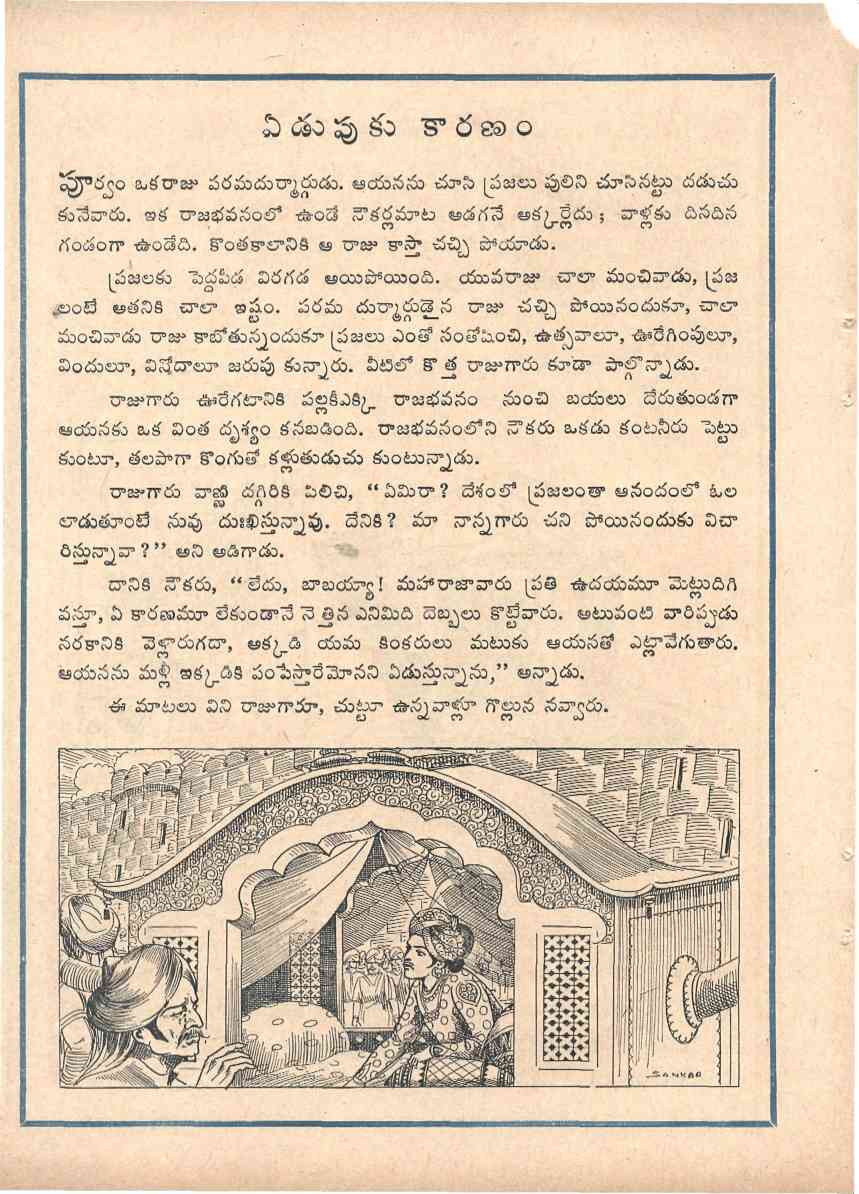 ఏడుపుకు కారణం
పూర్వం ఒకరాజు పరమదుర్మార్గుడు. ఆయనను చూసి ప్రజలు పులిని చూసినట్టు దడుచు
కునేవారు. ఇక రాజభవనంలో ఉండే నౌకర్లమాట అడగనే అక్కర్లేదు; వాళ్లకు దినదిన
గండంగా ఉండేది. కొంతకాలానికి ఆ రాజు కాస్తా చచ్చి పోయాడు.
ప్రజలకు పెద్దపీడ విరగడ అయిపోయింది. యువరాజు చాలా మంచివాడు, ప్రజ
లంటే అతనికి చాలా ఇష్టం. పరమ దుర్మార్గుడైన రాజు చచ్చి పోయినందుకూ, చాలా
మంచివాడు రాజు కాబోతున్నందుకూ ప్రజలు ఎంతో సంతోషించి, ఉత్సవాలూ, ఊరేగింపులూ,
విందులూ, వినోదాలూ జరుపు కున్నారు. వీటిలో కొత్త రాజుగారు కూడా పాల్గొన్నాడు.
రాజుగారు ఊరేగటానికి పల్లకీఎక్కి రాజభవనం నుంచి బయలు దేరుతుండగా
ఆయనకు ఒక వింత దృశ్యం కనబడింది. రాజభవనంలోని నౌకరు ఒకడు కంటనీరు పెట్టు
కుంటూ, తలపాగా కొంగుతో కళ్లుతుడుచు కుంటున్నాడు.
రాజుగారు వాణ్ణి దగ్గిరికి పిలిచి, “ఏమిరా? దేశంలో ప్రజలంతా ఆనందంలో ఓల
లాడుతూంటే నువు దుఃఖిస్తున్నావు. దేనికి? మా నాన్నగారు చని పోయినందుకు విచా
రిస్తున్నావా?” అని అడిగాడు.
దానికి నౌకరు, “లేదు, బాబయ్యా! మహారాజావారు ప్రతి ఉదయమూ మెట్లుదిగి
వస్తూ, ఏ కారణమూ లేకుండానే నెత్తిన ఎనిమిది దెబ్బలు కొట్టేవారు. అటువంటి వారిప్పుడు
నరకానికి వెళ్లారుగదా, అక్కడి యమ కింకరులు మటుకు ఆయనతో ఎట్లావేగుతారు.
ఆయనను మళ్లీ ఇక్కడికి పంపేస్తారేమోనని ఏడుస్తున్నాను,” అన్నాడు.
ఈ మాటలు విని రాజుగారూ, చుట్టూ ఉన్నవాళ్లూ గొల్లున నవ్వారు.
SANKAR